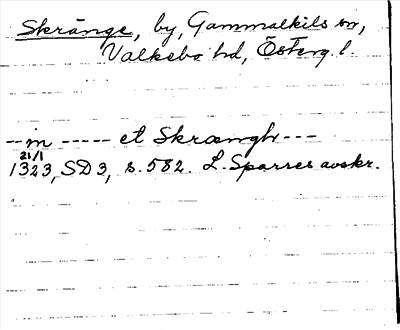 Skränge, by, Gammalkils sn,
Valkebo hd, Österg. l.
--in ----- et Skrængh---
21/1
1323, SD 3, s. 582. L. Sparres avskr.